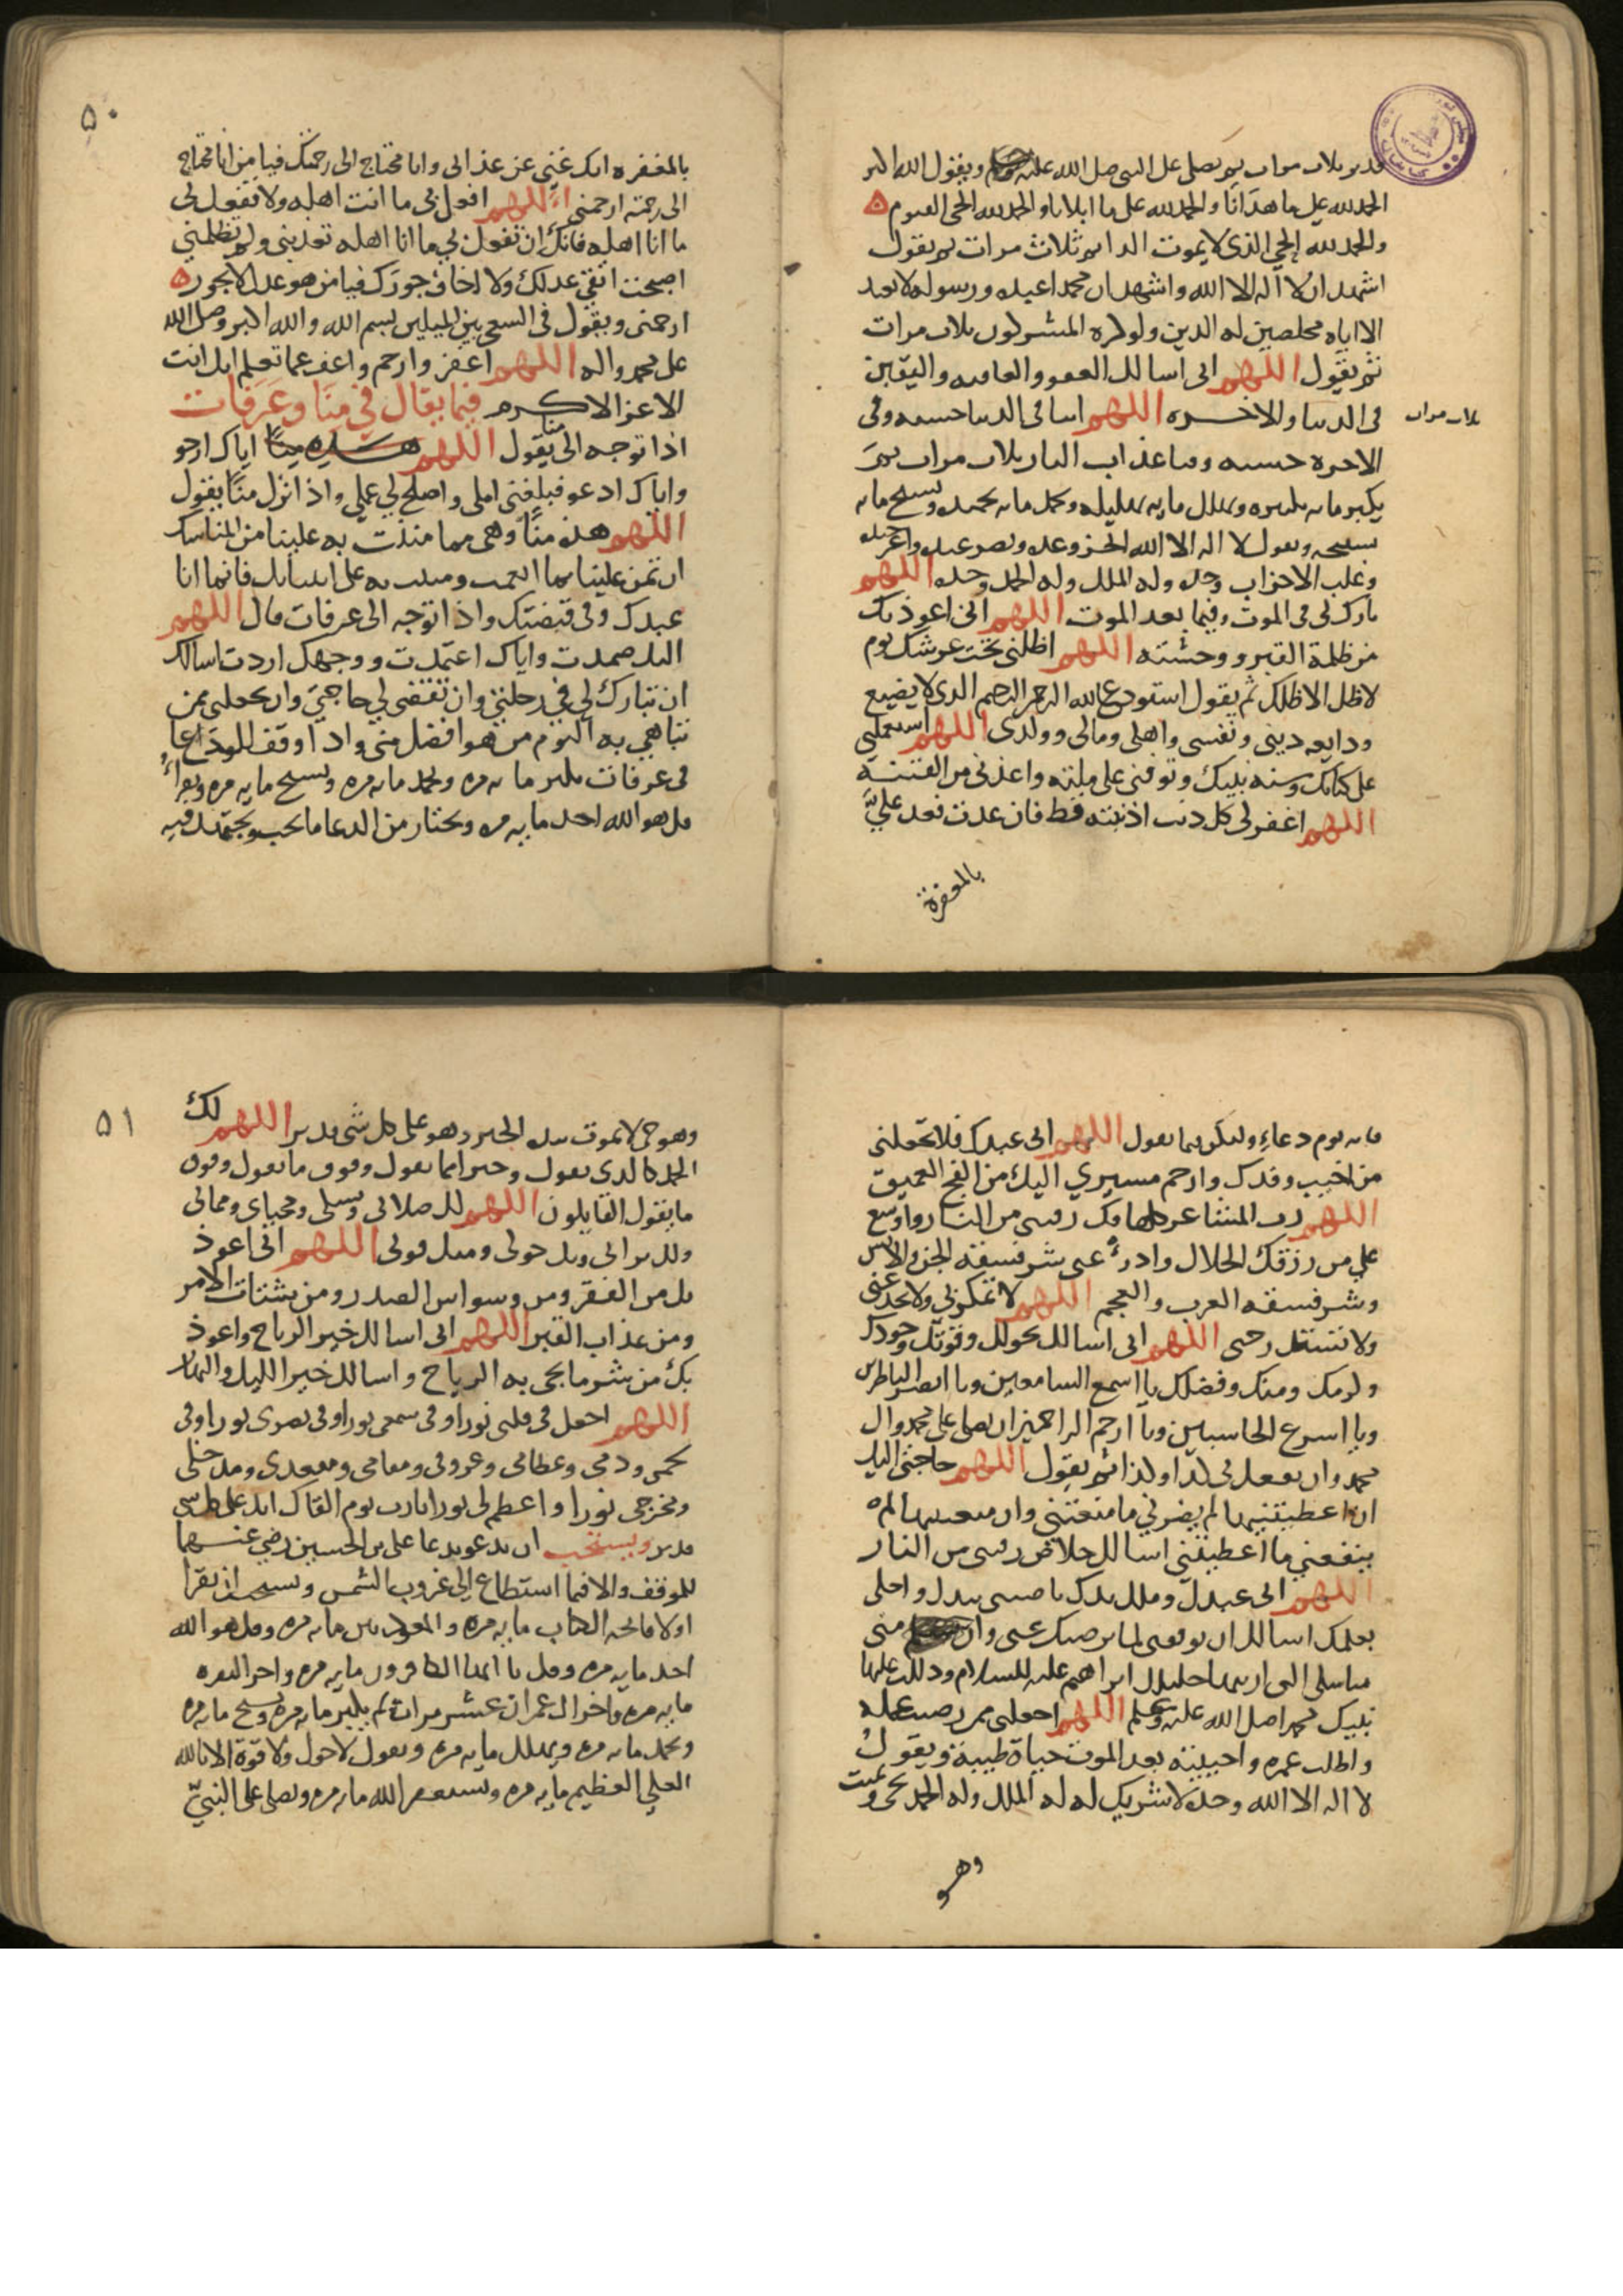 قدير ثلاث مرات ثم يصلي على النبي صلى الله عليه وسلم ويقول الله اكبر
الحمد لله على ما هدانا والحمد لله على ما ابلانا والحمد لله الحي القيوم ه
والحمد لله الحي الذي لا يموت الدايم ثلاث مرات ثم يقول
اشهد ان لا اله الا الله واشهد ان محمدا عبده ورسوله لا نعبد
الا اياه مخلصين له الدين ولو كره المشركون ثلاث مرات
ثم يقول اللهم اني اسالك العفو والعافيه واليقين
في الدنيا والاخره اللهم اتنا في الدنيا حسنه وفي
ثلاث مرات
الاخره حسنه وقنا عذاب النار ثلاث مرات ثم
يكبر مايه تكبيره ويهلل مايه تهليله ويحمد مايه تحميده ويسبح مايه
تسبيحه ويقول لا اله الا الله انجز وعده ونصر عبده واعز جنده
وغلب الاحزاب وحده وله الملك وله الحمد وحده اللهم
بارك لي في الموت وفيما بعد الموت اللهم اني اعوذ بك
من ظلمة القبر ووحشته اللهم اظلني تحت عرشك يوم
لا ظل الا ظلك ثم يقول استودع الله الرحمن الرحيم الذي لا يضيع
ودايعه ديني ونفسي واهلي ومالي وولدي اللهم استعملني
على كتابك وسنة نبيك وتوفني على ملته واعذني من الفتنة
اللهم اغفر لي كل ذنب اذنبته قط فان عدت فعد عليّ
بالمغفرة
۵۰
بالمغفره انك غني عن عذابي وانا محتاج الى رحمتك فيا من انا محتاج
الى رحمته ارحمني اللهم افعل بي ما انت اهله ولا تفعل بي
ما انا اهله فانك ان تفعل بي ما انا اهله تعذبني ولم تظلمني
اصبحت اتقي عدلك ولا اخاف جورك فيا من هو عدل لا يجور ه
ارحمني ويقول في السعي بين الميلين بسم الله والله اكبر وصلى الله
على محمد واله اللهم اغفر وارحم واعف عما تعلم انك انت
الاعز الاكرم فيما يقال في منا وعرفات
اذا توجه الى منا يقول اللهم اياك ارجو
واياك ادعو فبلغني املي واصلح لي عملي واذا نزل منًا يقول
اللهم هذه منًا وهي مما مننت به علينا من المناسك
ان تمن علينا بما انعمت ومننت به على انبيائك فانما انا
عبدك وفي قبضتك واذا توجه الى عرفات قال اللهم
اليك صمدت واياك اعتمدت ووجهك اردت اسالك
ان تبارك لي في رحلتي وان تقضي لي حاجتي وان تجعلني ممن
تباهي به اليوم من هو افضل مني واذا وقف للوداع
في عرفات يكبر مايه مره ويحمد مايه مره ويسبح مايه مره ويقرأ
قل هو الله احد مايه مره ويختار من الدعا ما يحب ويجتهد فيه
فانه يوم دعاء وليكن فيما يقول اللهم اني عبدك فلا تجعلني
من اخيب وفدك وارحم مسيري اليك من الفج العميق
اللهم رب المشاعر كلها فك رقبتي من النار واوسع
علي من رزقك الحلال وادرء عني شر فسقة الجن والانس
وشر فسقه العرب والعجم اللهم لا تمكر بي ولا تخدعني
ولا تستدرجني اللهم اني اسالك بحولك وقوتك وجودك
وكرمك ومنك وفضلك يا اسمع السامعين ويا ابصر الناظرين
ويا اسرع الحاسبين ويا ارحم الراحمين ان تصلي على محمد وال
محمد وان تفعل بي كذا وكذا ثم يقول اللهم حاجتي اليك
ان اعطيتنيها لم يضرني ما منعتني وان منعتنيها لم
ينفعني ما اعطيتني اسالك خلاص رقبتي من النار
اللهم اني عبدك وملك يدك ناصيتي بيدك واجلي
بعلمك اسالك ان توفقني لما يرضيك عني وان مني
مناسكي التي اريتها خليلك ابراهيم عليه السلام ودللت عليها
نبيك محمد صلى الله عليه وسلم اللهم اجعلني ممن رضيت عمله
واطلت عمره واحييته بعد الموت حياة طيبة ويقول
لا اله الا الله وحده لا شريك له له الملك وله الحمد يحيي ويميت
وهو
۵۱
وهو حي لا يموت بيده الخير وهو على كل شي قدير اللهم لك
الحمد كالذي تقول وخيرا مما نقول وفوق ما نقول وفوق
ما يقول القايلون اللهم لك صلاتي ونسكي ومحياي ومماتي
ولك تراثي وبك حولي ومنك قوتي اللهم اني اعوذ
بك من الفقر ومن وسواس الصدر ومن شتات الامر
ومن عذاب القبر اللهم اني اسالك خير الرياح واعوذ
بك من شر ما يجي به الرياح واسالك خير الليل والنهار
اللهم اجعل في قلبي نورا وفي سمعي نورا وفي بصري نورا وفي
لحمي ودمي وعظامي وعروقي ومقامي ومقعدي ومدخلي
ومخرجي نورا واعظم لي نورا يا رب يوم القاك انك على كل شي
قدير ويستحب ان يدعو بدعا علي بن الحسين رضي عنهما
للموقف والا فما استطاع الى غروب الشمس ويستحب ان يقرا
اولا فاتحه الكتاب مايه مره والمعوذتين مايه مره وقل هو الله
احد مايه مره وقل يا ايها الكافرون مايه مره واخر البقره
مايه مره واخر ال عمران عشر مرات ثم يكبر مايه مره ويسبح مايه مره
ويحمد مايه مره ويهلل مايه مره ويقول لا حول ولا قوة الا بالله
العلي العظيم مايه مره ويستغفر الله مايه مره ويصلي على النبيّ